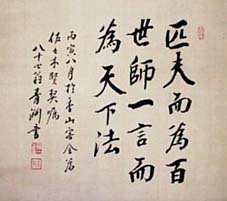 匹夫而為百
世師一言而
為天下法
丙寅八月於香山客舍為
佐々木賢契嘱
八十七翁青淵書